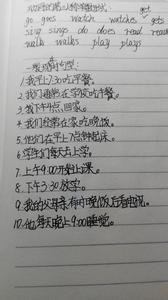 动词第三人称单数形式 get
go goes watch watches gets
sing sings do does read reads
walk walks play plays
一般现在时句型:
1.我早上7:30吃早餐。
2.我们通常在学校吃午餐。
3.我下午5点回家。
4.我们经常在家吃晚饭。
5.他们在早上7点钟起床。
6.学生们每天去上学。
7.上午9:00开始上课。
8.下午3:30放学。
9.我的父母亲有时晚饭后看电视。
10.他每天晚上9:00睡觉。